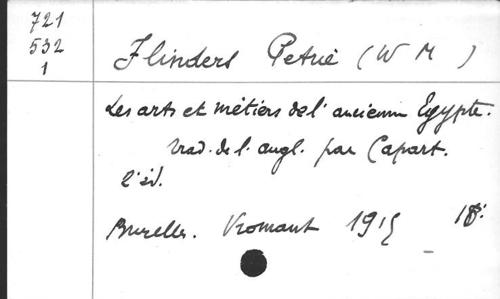 721
532
1
Flinders Petrie (W M )
Les arts et métiers de l'ancienne Egypte.
trad. de l. angl. par Capart.
2e éd.
Bruxelles. Vromant 1915 18°